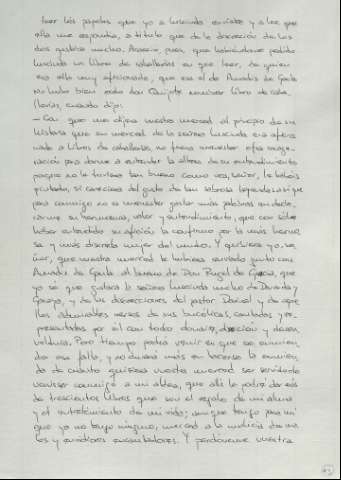 leer los papeles que yo a Luscinda enviaba y a los que
ella me respondía, a título que de la discreción de los
dos gustaba mucho. Acaeció, pues, que habiéndome pedido
Luscinda un libro de caballerías en que leer, de quien
era ella muy aficionada, que era el de Amadís de Gaula
No hubo bien oído don Quijote nombrar libro de caba
llerías, cuando dijo:
- Con que me dijera vuestra merced al principio de su
historia que su merced de la señora Luscinda era aficio
nada a libros de caballerías, no fuera menester otra exage
ración para darme a entender la alteza de su entendimiento
porque no le tuviera tan bueno como vos, señor, le habéis
pintado, si careciera del gusto de tan sabrosa leyenda: así que
para conmigo no es menester gastar más palabras en decla
rarme su hermosura, valor y entendimiento, que con sólo
haber entendido su afición la confirmo por la más hermo
sa y más discreta mujer del mundo. Y quisiera yo, se
ñor, que vuestra merced le hubiera enviado junto con
Amadís de Gaula al bueno de Don Rugel de Grecia, que
yo sé que gustara la señora Luscinda mucho de Daraida y
Garaya, y de las discreciones del pastor Darinel y de aque
llos admirables versos de sus bucólicas, cantadas y re
presentadas por él con todo donaire, discreción y desen
voltura. Pero tiempo podrá venir en que se enmien
da esa falta, y no durará más en hacerse la enmien
da de cuanto quisiera vuestra merced ser servido de
venirse conmigo a mi aldea, que allí le podré dar más
de trescientos libros que son el regalo de mi alma
y el entretenimiento de mi vida; aunque tengo para mí
que ya no tengo ninguno, merced a la malicia de ma
los y envidiosos encantadores. Y perdóneme vuestra